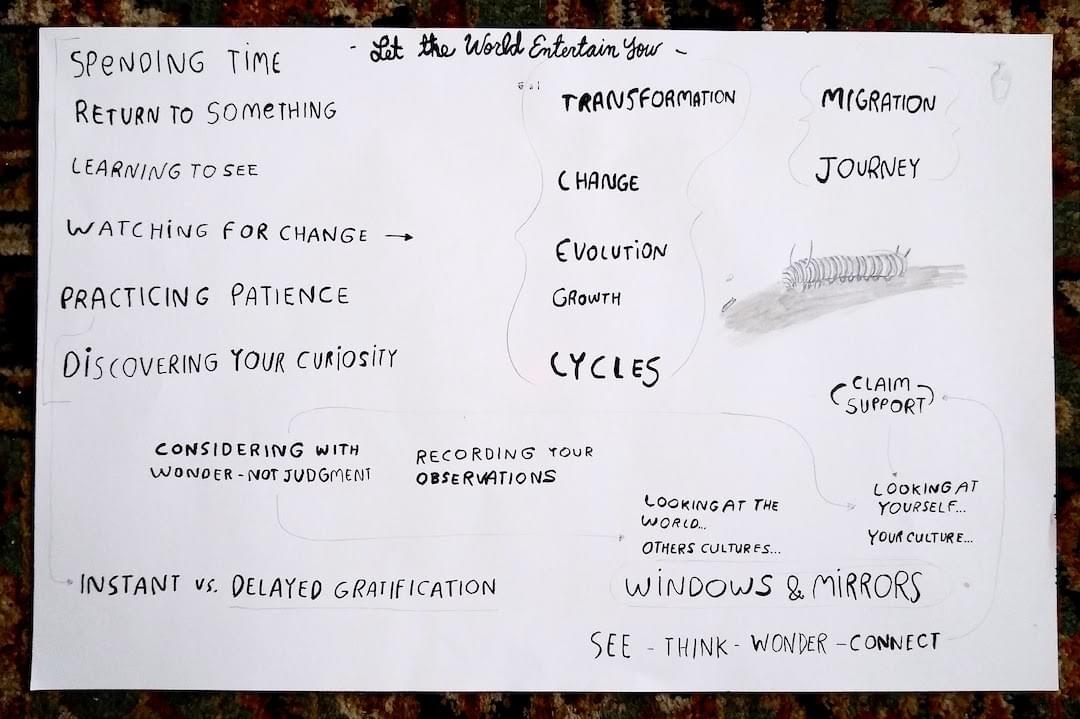 - Let the World Entertain You -
SPENDING TIME
RETURN TO SOMETHING
LEARNING TO SEE
WATCHING FOR CHANGE →
PRACTICING PATIENCE
DISCOVERING YOUR CURIOSITY
TRANSFORMATION
CHANGE
EVOLUTION
GROWTH
CYCLES
MIGRATION
JOURNEY
CLAIM
SUPPORT
CONSIDERING WITH
WONDER - NOT JUDGMENT
RECORDING YOUR
OBSERVATIONS
LOOKING AT THE
WORLD...
OTHERS CULTURES...
LOOKING AT
YOURSELF...
YOUR CULTURE...
INSTANT vs. DELAYED GRATIFICATION
WINDOWS & MIRRORS
SEE - THINK - WONDER - CONNECT